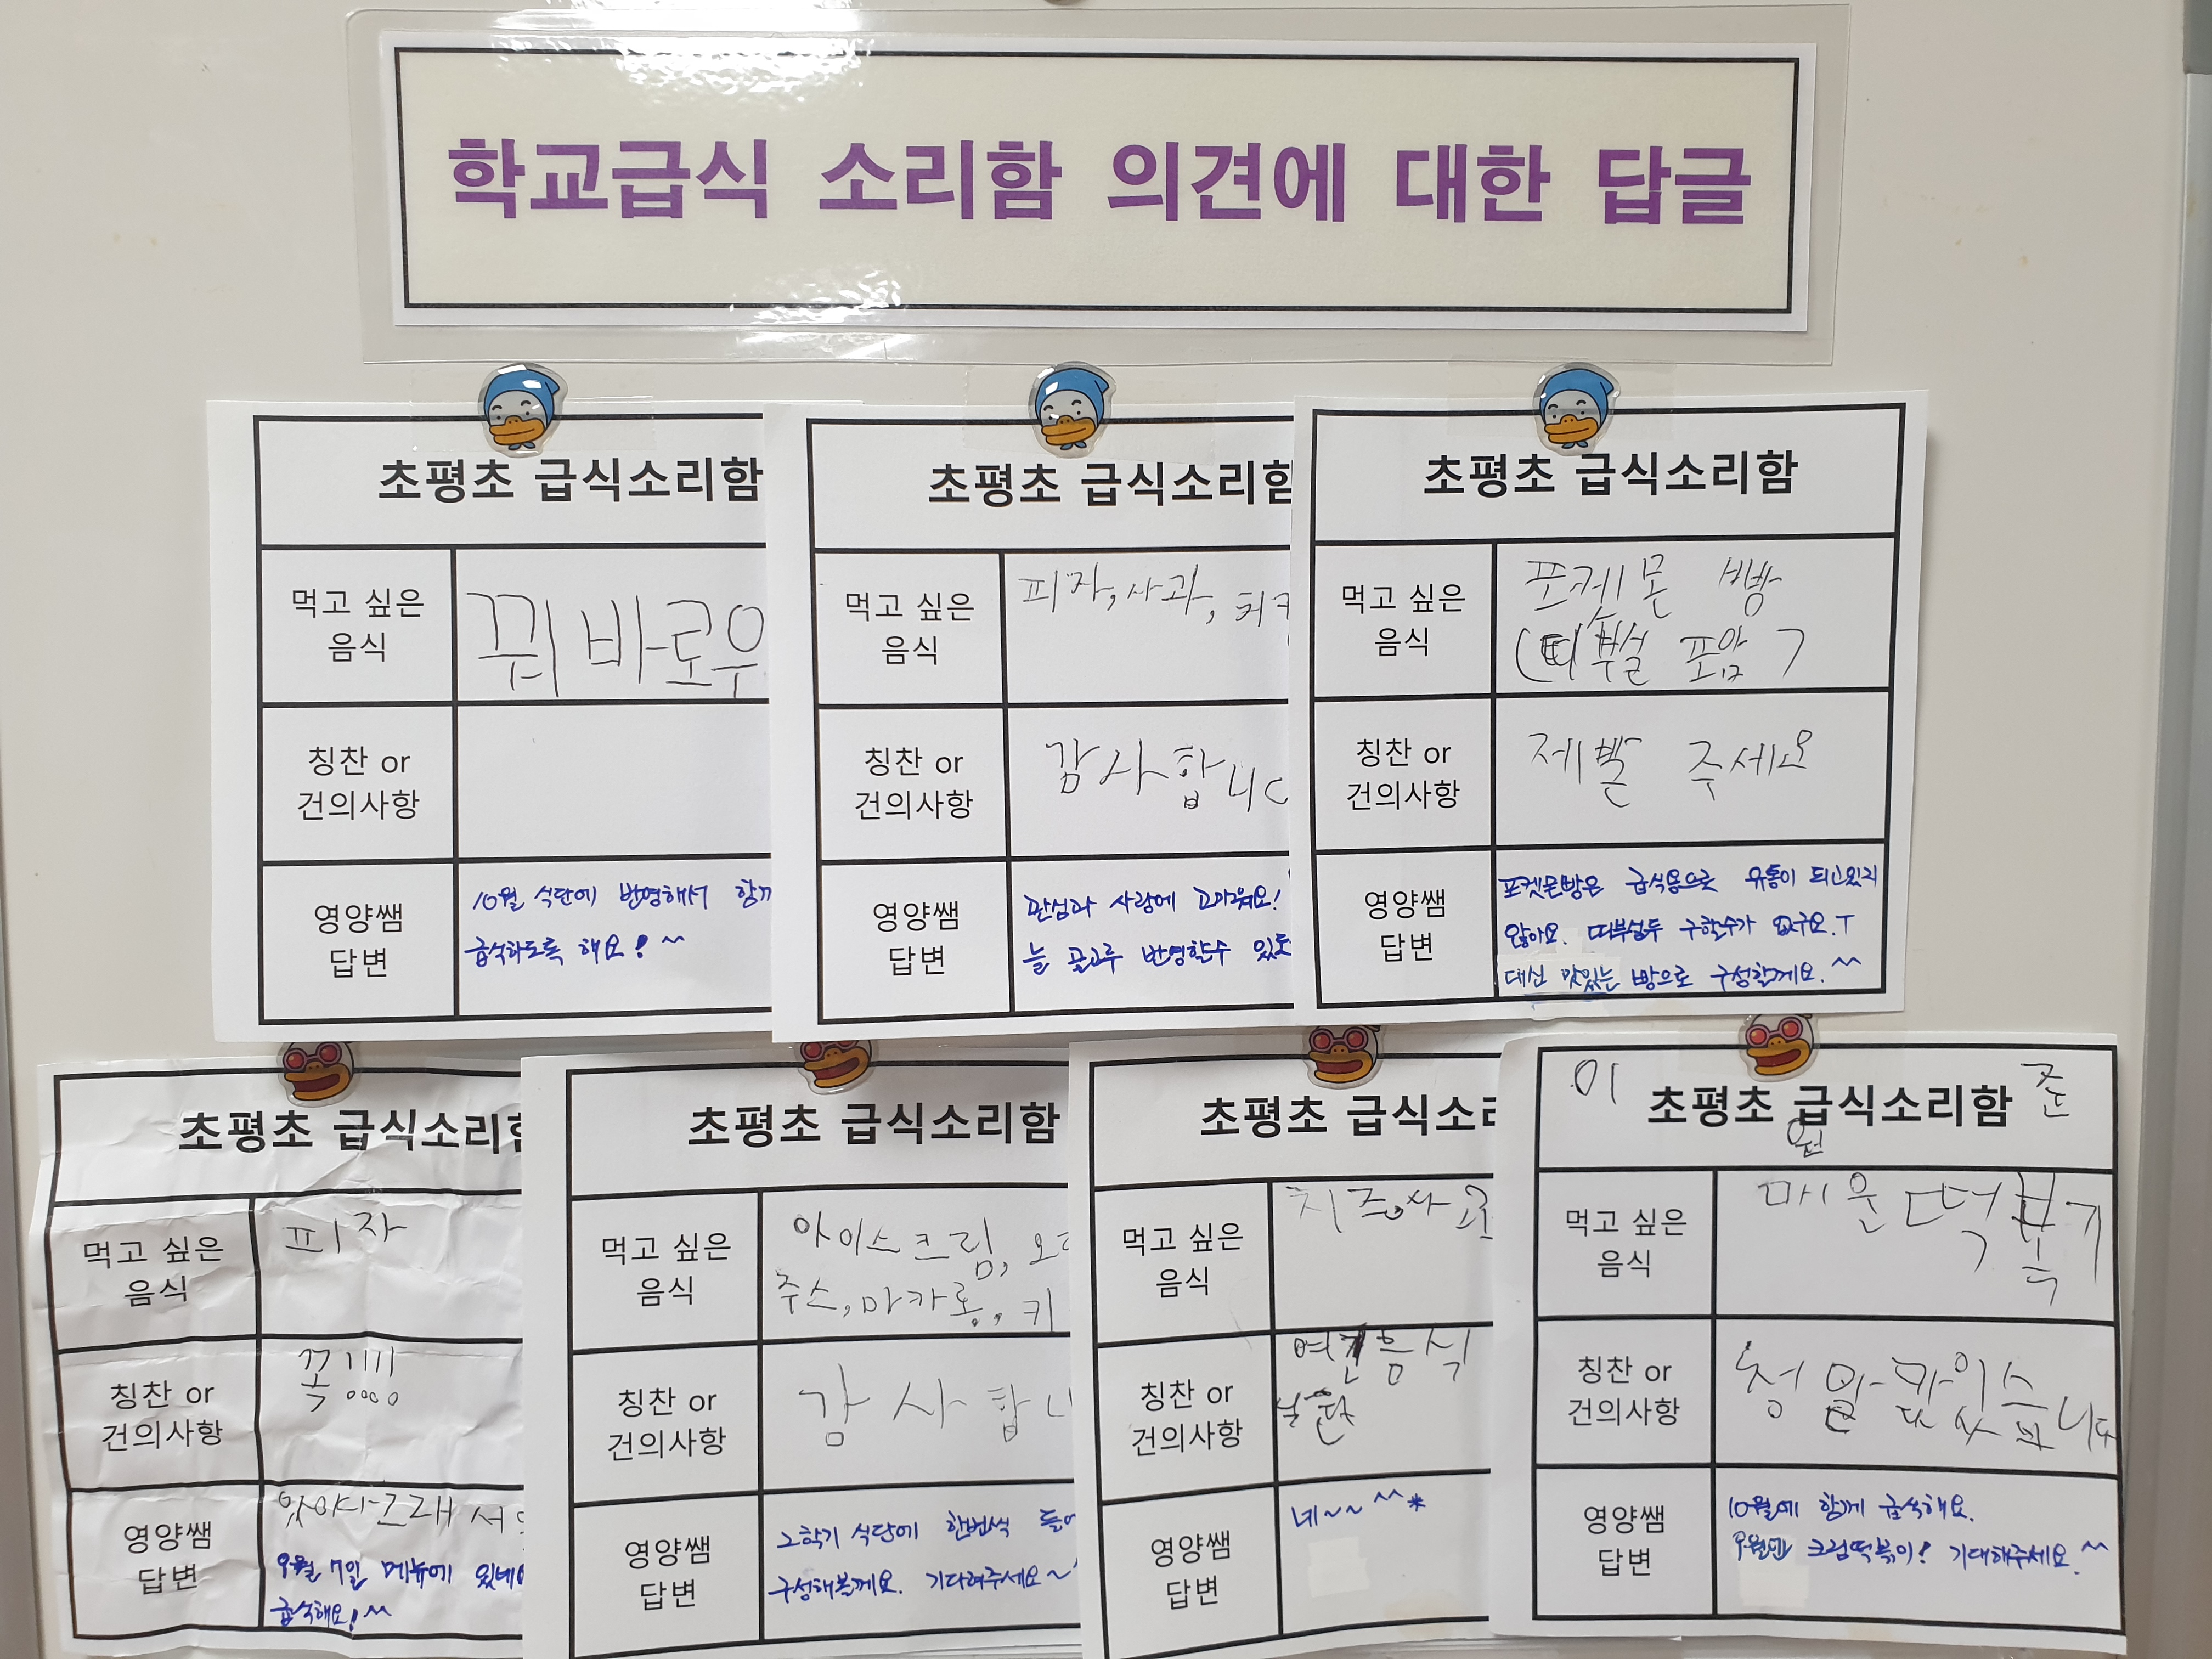 학교급식 소리함 의견에 대한 답글
초평초 급식소리함
먹고 싶은
음식
꿔바로우
칭찬 or
건의사항
영양쌤
답변
10월 식단에 반영해서 함께
급식하도록 해요! ^^
초평초 급식소리함
먹고 싶은
음식
피자, 사과, 치킨
칭찬 or
건의사항
감사합니다
영양쌤
답변
관심과 사랑에 고마워요!
늘 골고루 반영할수 있도
초평초 급식소리함
먹고 싶은
음식
포켓몬 빵
(띠부실 포함)
칭찬 or
건의사항
제발 주세요
영양쌤
답변
포켓몬빵은 급식용으로 유통이 되고있지
않아요. 띠부실두 구할수가 없구요.ㅜ
대신 맛있는 빵으로 구성할게요.^^
초평초 급식소리함
먹고 싶은
음식
피자
칭찬 or
건의사항
꼭!!!!
영양쌤
답변
9월 7일 메뉴에 있네
급식해요! ^^
초평초 급식소리함
먹고 싶은
음식
아이스크림,
주스, 마카롱, 키
칭찬 or
건의사항
감사합니
영양쌤
답변
2학기 식단에 한번씩
구성해볼게요. 기다려주세요~
초평초 급식소리
먹고 싶은
음식
치즈, 사과
칭찬 or
건의사항
음식
영양쌤
답변
네~~ ^^*
이 초평초 급식소리함 준
원
먹고 싶은
음식
매운 떡볶기
칭찬 or
건의사항
정말 맛있습니다
영양쌤
답변
10월에 함께 급식해요.
9월엔 크림떡볶이! 기대해주세요.^^